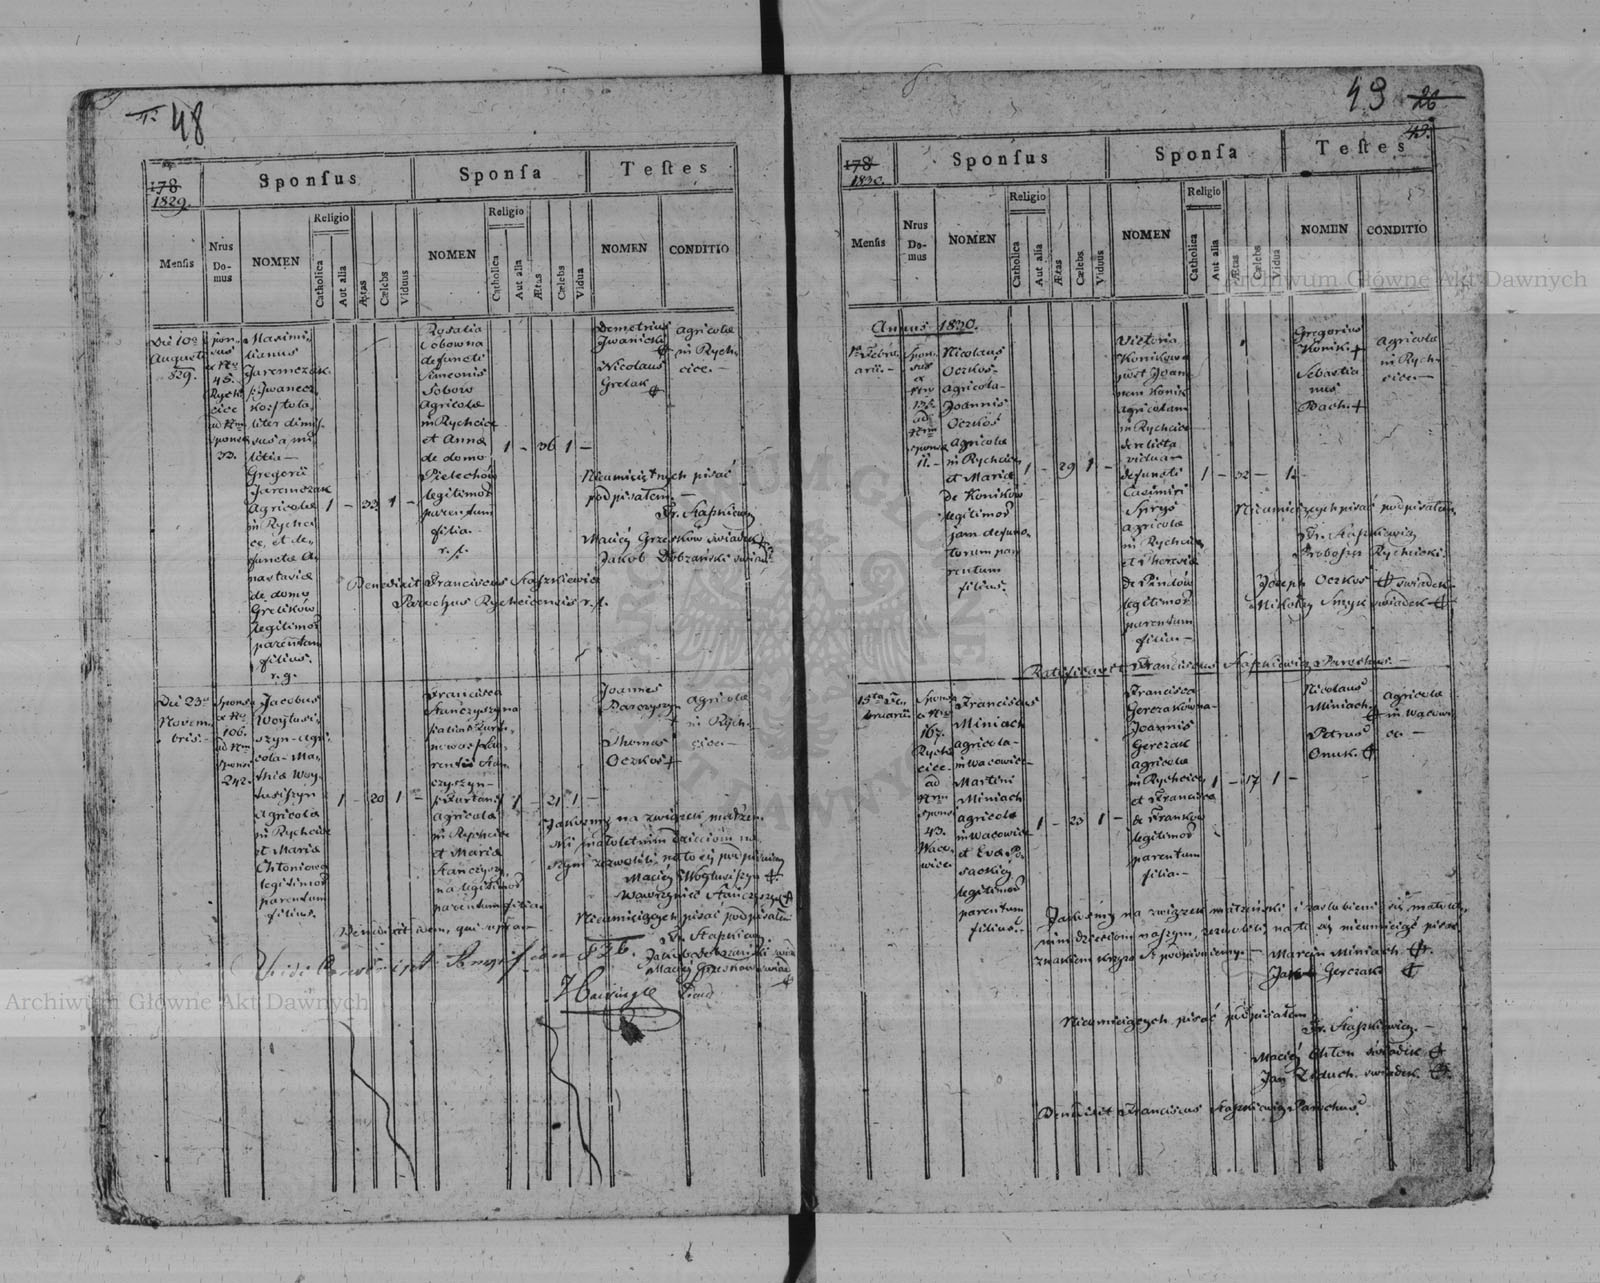 48
1829.
Sponſus
Sponſa
Teſtes
Menſis
Nrus Do-mus
NOMEN
Religio
Catholica
Aut alia
Ætas
Cælebs
Viduus
NOMEN
Religio
Catholica
Aut alia
Ætas
Cælebs
Vidua
NOMEN
CONDITIO
Die 10a
Augusti
829.
spon-
sus
e Nro
45.
Rych-
cice
ad Nrm
sponsæ
33.
Maximi-
lianus
Jaremczak
litia
Gregorii
Jaremczak
Agricolæ
in Rychci-
ce, et de-
functæ A-
nastasiæ
de domo
Grelików
legitimor
parentum
filius.
r. g.
1 - 33 1 -
Rosalia
Sobowna
defuncti
Simeonis
Sobów
Agricolæ
in Rychcice
et Annæ
de domo
Pielechów
legitimor
parentum
filia.
r. l.
1 - 36 1 -
Demetrius
Iwanicki
Nicolaus
Grelak
Agricolæ
in Rych-
cice.
Nieumieiętnych pisać
podpisałem.
Fr. Staszkiewicz
Maciey Grzesków swiadek
Jakob Dobrzański swiad
Benedixit Franciscus Staszkiewicz
Parochus Rychcicensis r. l.
Die 23a
Novem-
bris.
Spons.
e Nro
106.
ad Nrm
sponsæ
242.
Jacobus
Woytusi-
szyn Agri-
cola Ma-
thiæ Woy-
tusiszyn
Agricolæ
in Rychcice
et Mariæ
Chtoniowa
legitimor
parentum
filius.
1 - 20 1 -
Francisca
Stanczyszyna
czyszyn
Agricolæ
in Rychcice
et Mariæ
Stanczyszy-
na legitimor
parentum filia.
1 - 21 1 -
Joannes
Parczyszyn
Thomas
Oczkos
Agricolæ
in Rych-
cice.
Jakośmy na zwiąsek małżen-
ski małoletnim dzieciom na-
szym zezwolili, na to się podpisuiem
Maciey Woytusiszyn
Wawrzyniec Stanczyszyn
Nieumieiących pisać podpisałem
Fr. Staszkiewicz
Jakob Dobrzański swiad
Maciey Grzeskow swiad
Benedixit idem, qui supra
49
26
49.
1830.
Sponſus
Sponſa
Teſtes
Menſis
Nrus Do-mus
NOMEN
Religio
Catholica
Aut alia
Ætas
Cælebs
Viduus
NOMEN
Religio
Catholica
Aut alia
Ætas
Cælebs
Vidua
NOMEN
CONDITIO
Annus 1830.
1a Febru-
arii.
Spon-
sus
e
Nro
ad
Nrm
sponsæ
11.
Nicolaus
Oczkos
Agricola
Joannis
Oczkos
Agricolæ
in Rychcice
et Mariæ
de Koników
legitimor
jam defunc-
torum pa-
rentum
filius.
1 - 29 1 -
Victoria
Konikowa
post Joan-
nem Konik
agricolam
in Rychcice
derelicta
vidua
defuncti
Casimiri
Smyś
Agricolæ
in Rychcice
et Theresiæ
de Pindów
legitimor
parentum
filia.
1 - 32 - 1.
Gregorius
Konik
Sebastia-
nus
Bach.
Agricolæ
in Rych-
cice.
Nieumieiących pisać podpisałem
Fr. Staszkiewicz
Proboszcz Rychcicki.
Jozeph Oczkos swiadek
Mikołay Smyk swiadek
Ratificavit Franciscus Staszkiewicz Parochus.
15ta Fe-
bruarii
Spons.
e Nro
167.
Rych-
cice
ad
Nrm
spons.
43.
Waco-
wice.
Franciscus
Miniach
Agricola
in Wacowice
Martini
Miniach
Agricolæ
in Wacowice
et Evæ Po-
sackiey
legitimor
parentum
filius.
1 - 23 1 -
Francisca
Gerczakowna
Joannis
Gerczak
Agricolæ
in Rychcice
et Francisca
de Franków
legitimor
parentum
filia.
1 - 17 1 -
Nicolaus
Miniach
Petrus
Onuk.
Agricolæ
in Wacowi-
ce.
Jakośmy na zwiąsek małżeński i zaslubienie się małolet-
nim dzieciom naszym, zezwolili na to się nieumieiąc pisać
znakiem krzyża S. podpisuiemy. Marcin Miniach
Jan Gerczak
Nieumieiących pisać podpisałem
Fr. Staszkiewicz.
Maciey Chton swiadek
Jan Zaduch. swiadek.
Benedixit Franciscus Staszkiewicz Parochus.
Archiwum Główne Akt Dawnych
Archiwum Główne Akt Dawnych